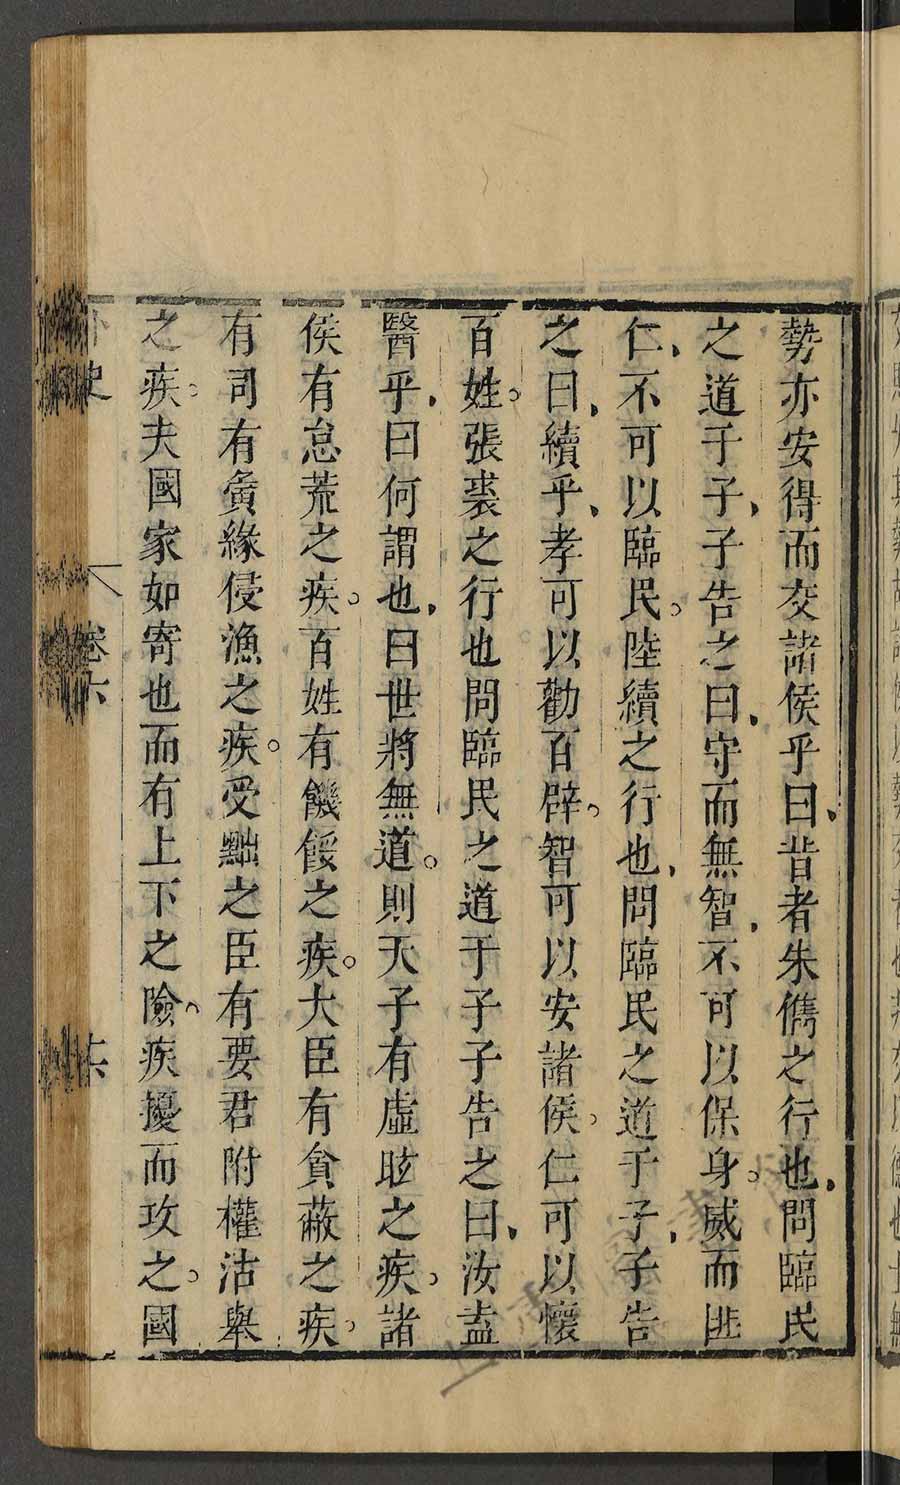 勢亦安得而交諸侯乎曰昔者朱儁之行也問臨民
之道于子子告之曰守而無智不可以保身威而匪
仁不可以臨民陸續之行也問臨民之道于子子告
之曰續乎孝可以勸百辟智可以安諸侯仁可以懷
百姓張裘之行也問臨民之道于子子告之曰汝盍
醫乎曰何謂也曰世將無道則天子有虛眩之疾諸
侯有怠荒之疾百姓有饑餒之疾大臣有貪蔽之疾
有司有夤緣侵漁之疾受黜之臣有要君附權沽舉
之疾夫國家如寄也而有上下之險疾擾而攻之國
史
卷六